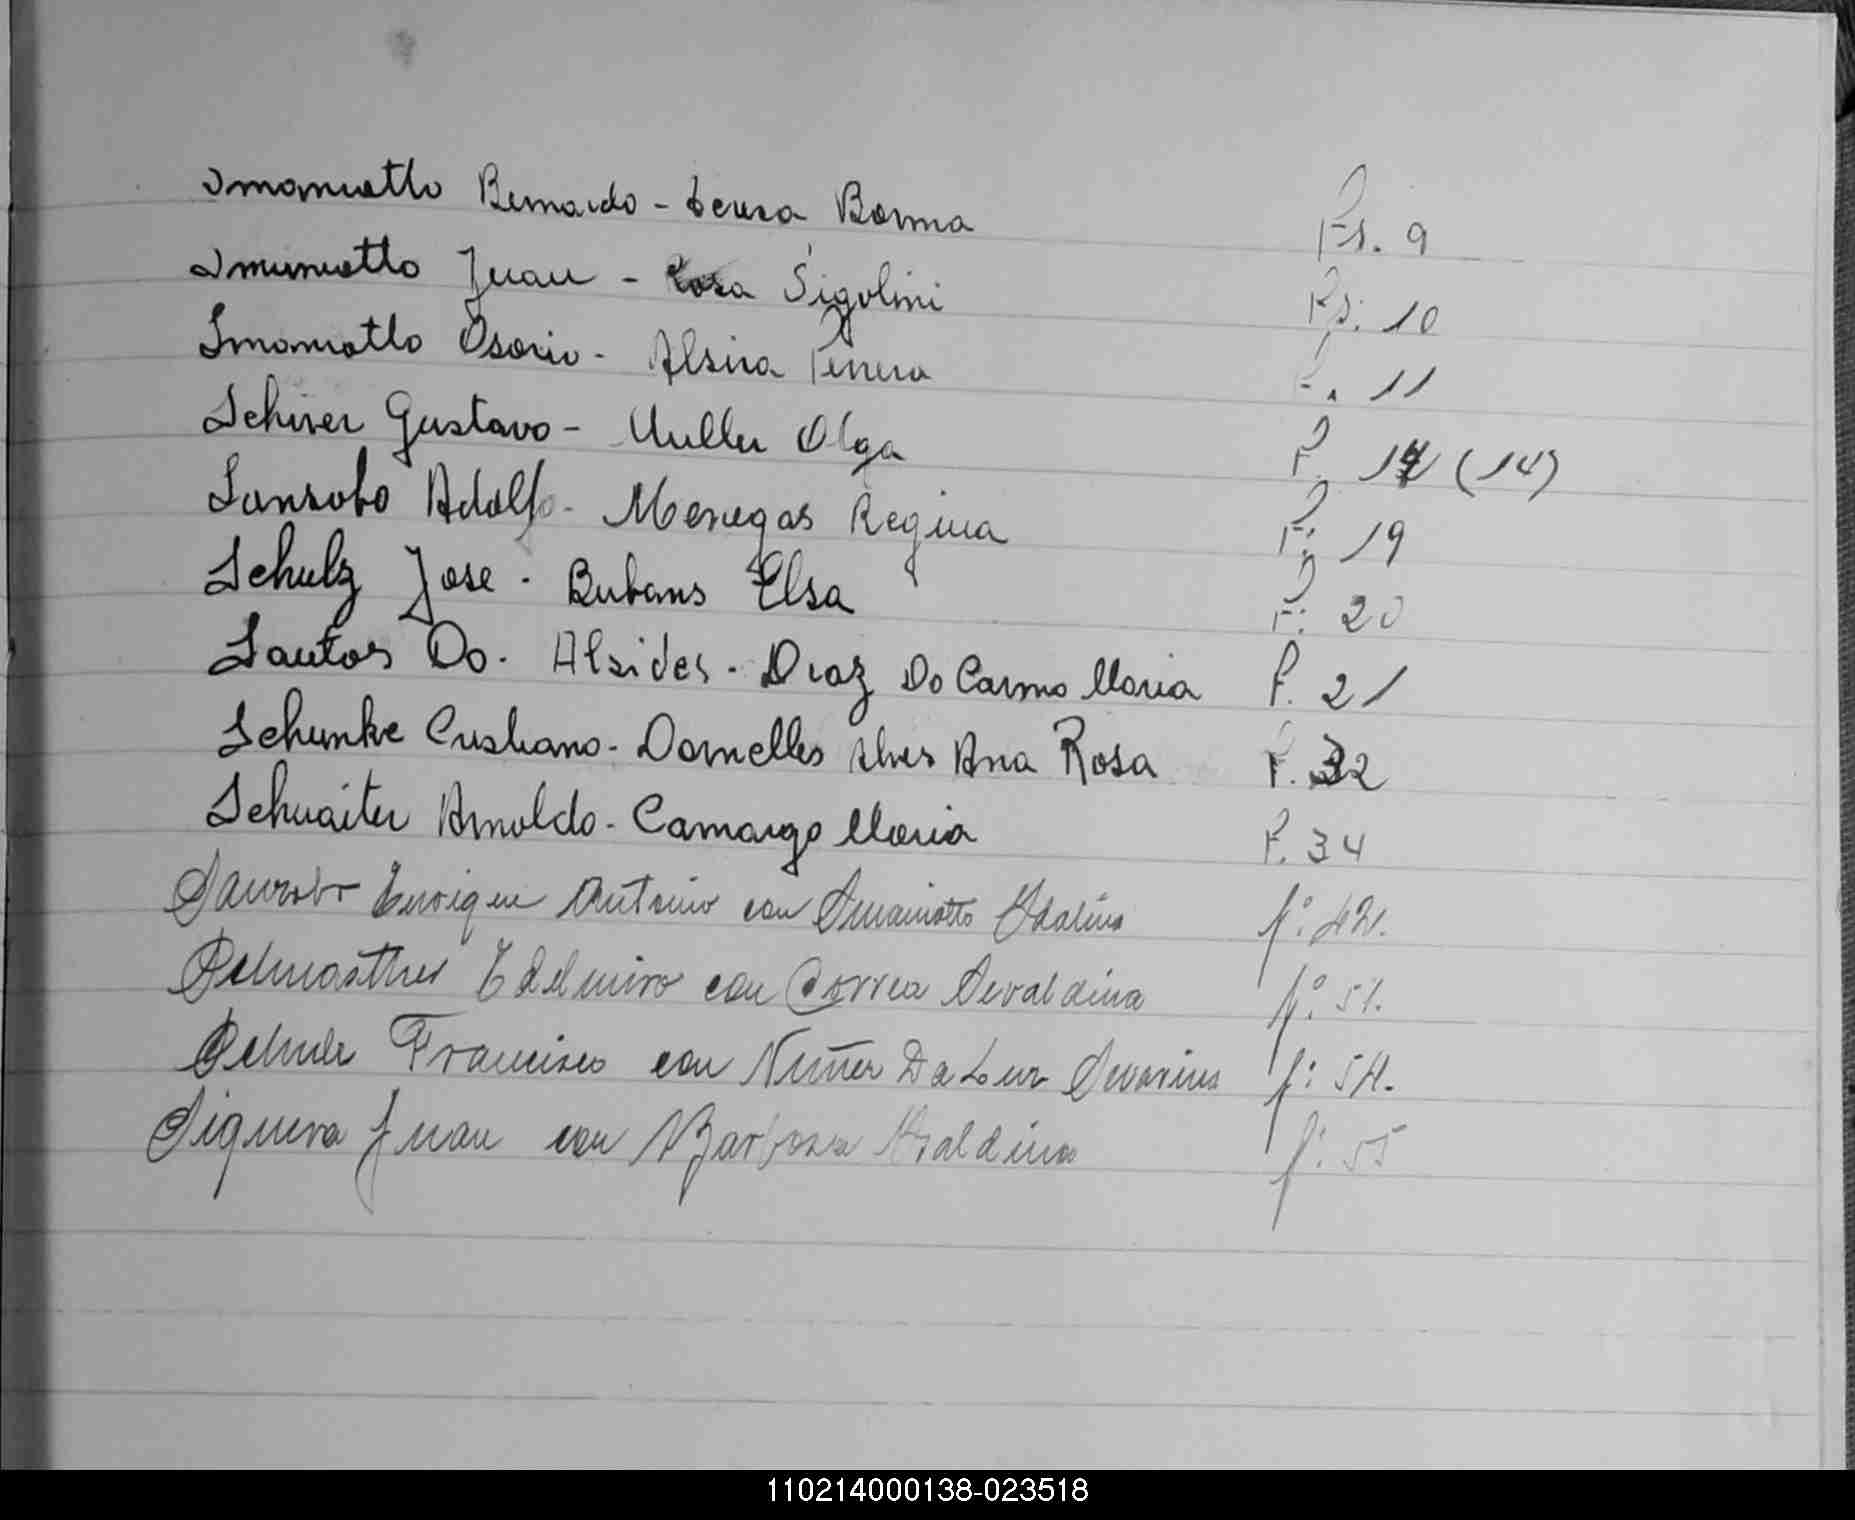 Smaniotto Bernardo - Borma Fs. 9
Smaniotto Juan - Rosa Sigolini Fs. 10
Smaniotto Osorio - Alsira Perera F. 11
Schirer Gustavo - Muller Olga F. 14 (14)
Sansobo Adolfo - Menegas Regina F. 19
Schulz Jose - Bubans Elsa F. 20
Santos Do. Alsides - Diaz Do Carmo Maria F. 21
Schunke Cristiano - Dornelles Alves Ana Rosa F. 32
Schuaiter Arnoldo - Camargo Maria F. 34
Enrique Antonio con Smaniotto f: 42.
Edelmiro con Correa f: 51.
Francisco con Nuñez Da Luz f: 54.
Siquera Juan con Barboza f: 55
110214000138-023518